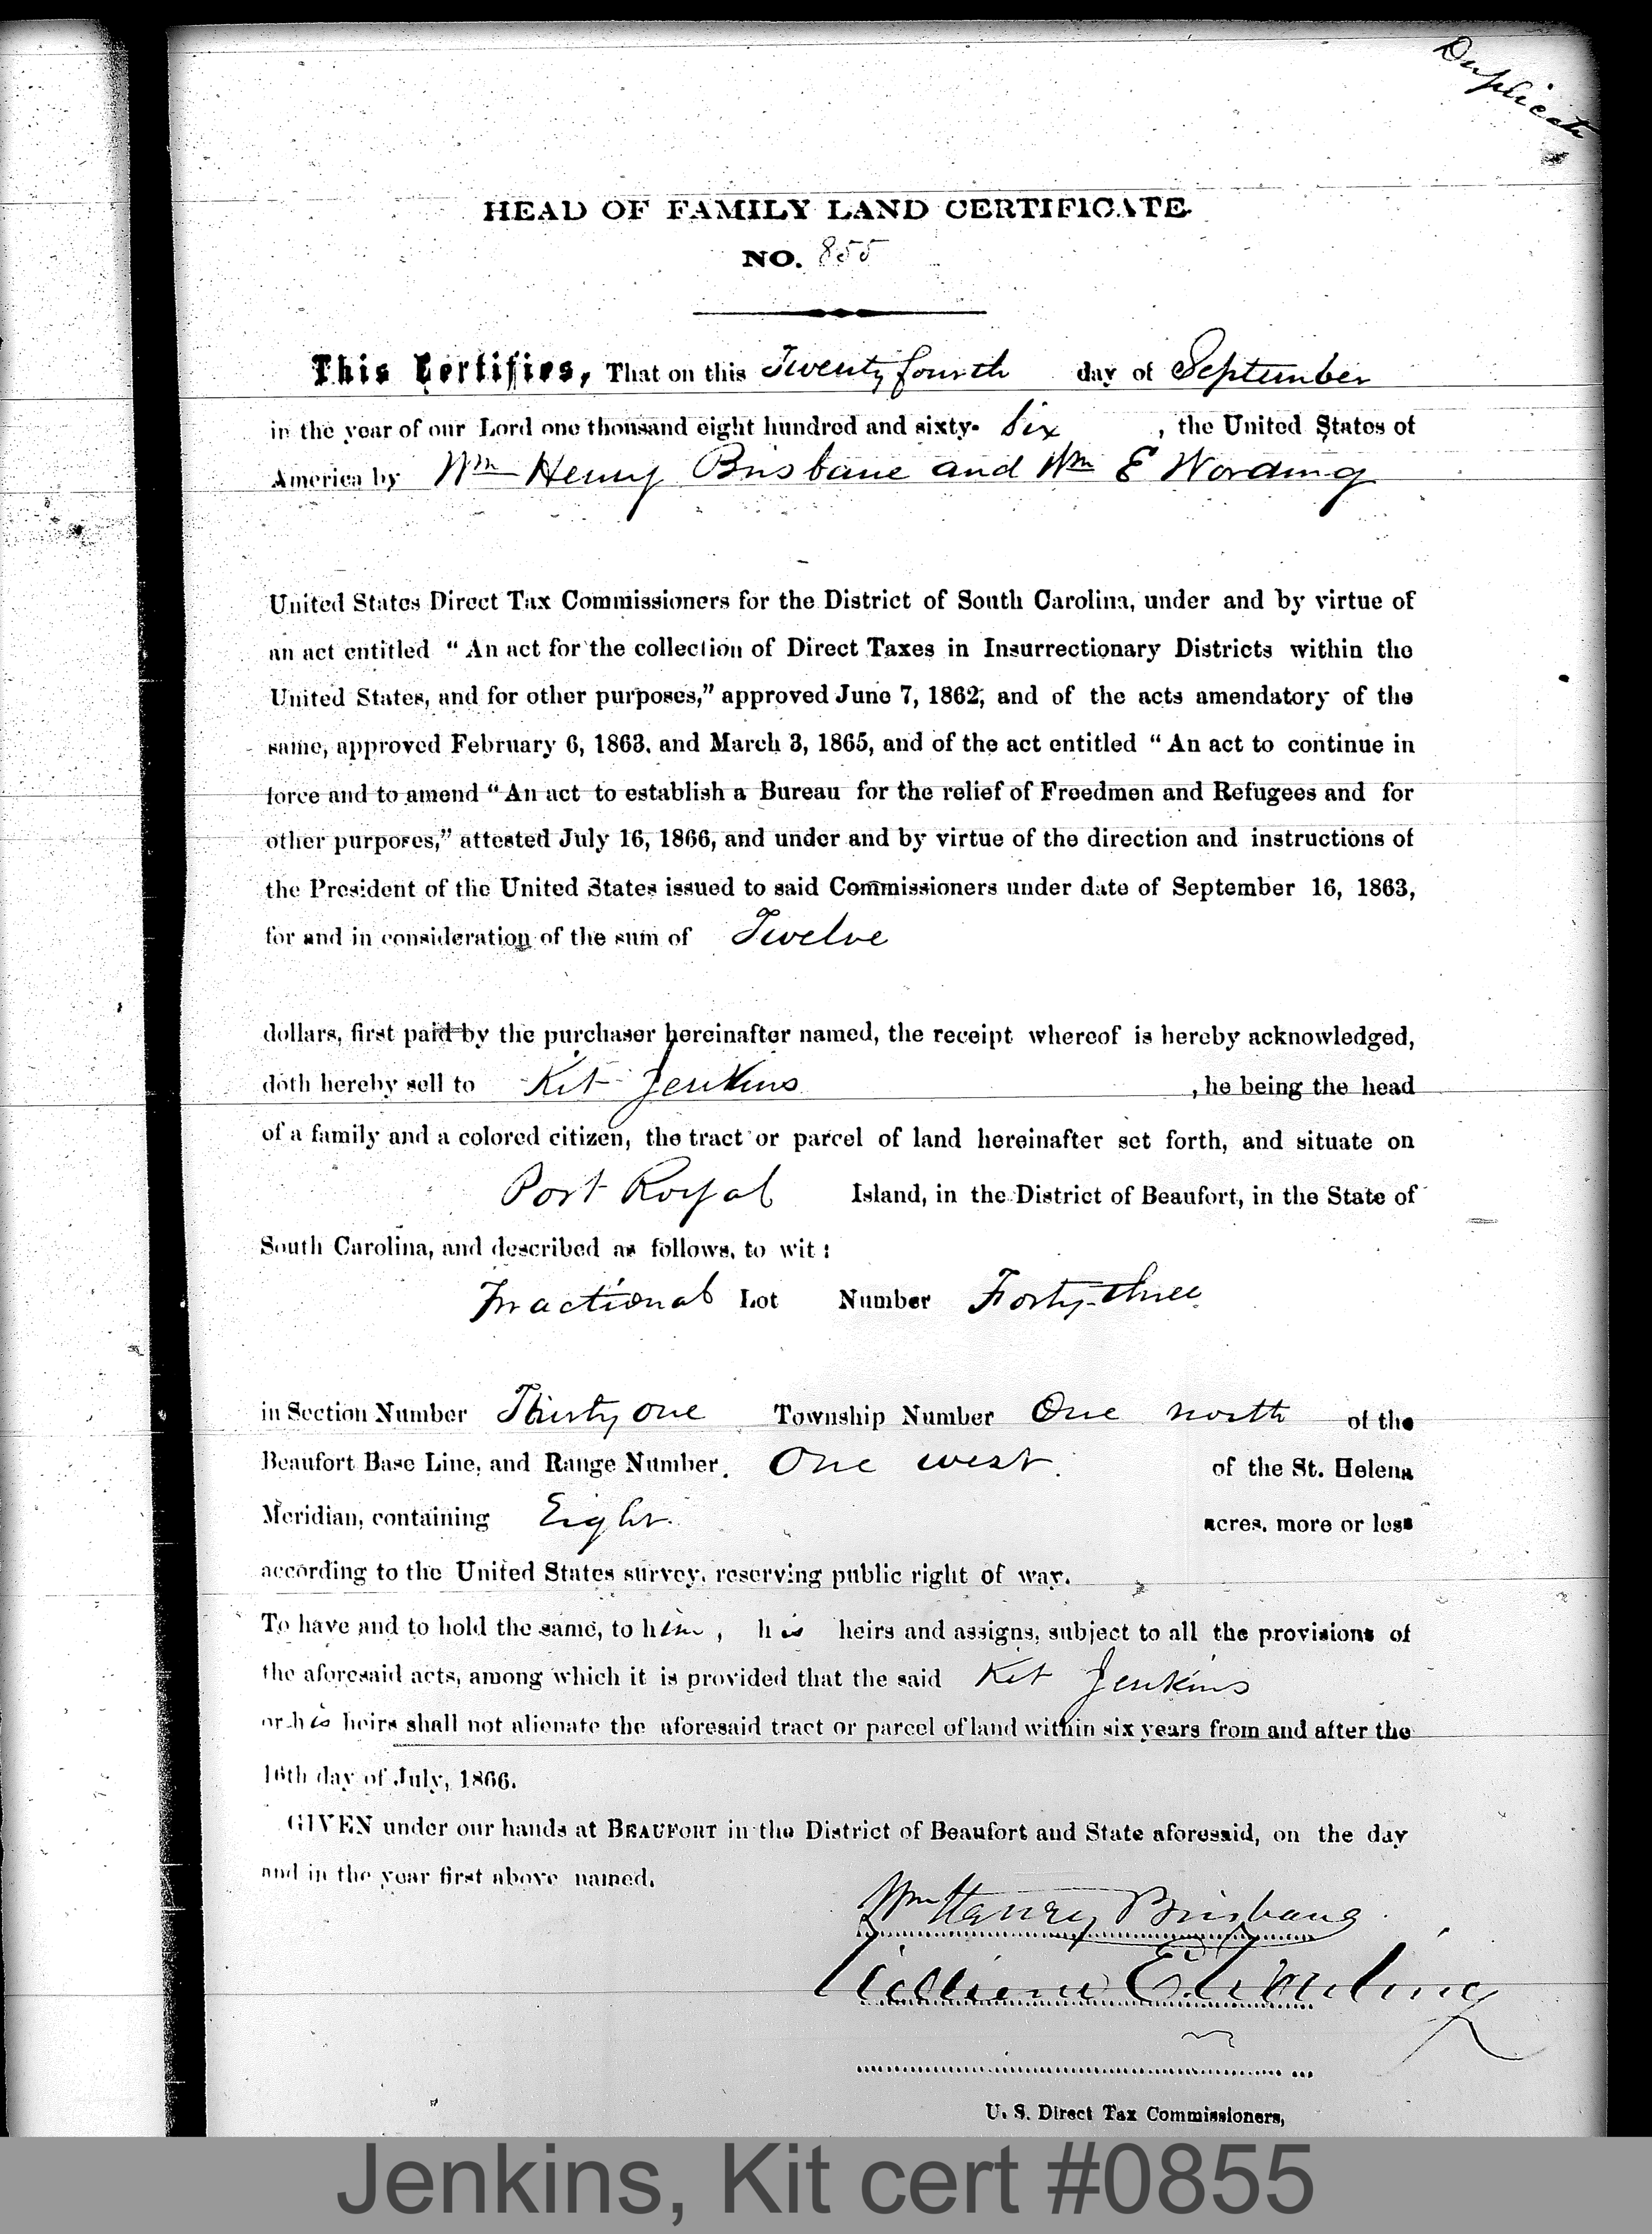 Duplicate
HEAD OF FAMILY LAND CERTIFICATE.
NO. 855
This Certifies, That on this Twenty fourth day of September
in the year of our Lord one thousand eight hundred and sixty- Six , the United States of
America by Wm Henry Brisbane and Wm E Wording
United States Direct Tax Commissioners for the District of South Carolina, under and by virtue of
an act entitled "An act for the collection of Direct Taxes in Insurrectionary Districts within the
United States, and for other purposes," approved June 7, 1862, and of the acts amendatory of the
same, approved February 6, 1863, and March 3, 1865, and of the act entitled "An act to continue in
force and to amend "An act to establish a Bureau for the relief of Freedmen and Refugees and for
other purposes," attested July 16, 1866, and under and by virtue of the direction and instructions of
the President of the United States issued to said Commissioners under date of September 16, 1863,
for and in consideration of the sum of Twelve
dollars, first paid by the purchaser hereinafter named, the receipt whereof is hereby acknowledged,
doth hereby sell to Kit Jenkins , he being the head
of a family and a colored citizen, the tract or parcel of land hereinafter set forth, and situate on
Port Royal Island, in the District of Beaufort, in the State of
South Carolina, and described as follows, to wit:
Fractional Lot Number Forty-three
in Section Number Thirty one Township Number One north of the
Beaufort Base Line, and Range Number. One west. of the St. Helena
Meridian, containing Eight acres, more or less
according to the United States survey, reserving public right of way.
To have and to hold the same, to him, his heirs and assigns, subject to all the provisions of
the aforesaid acts, among which it is provided that the said Kit Jenkins
or his heirs shall not alienate the aforesaid tract or parcel of land within six years from and after the
16th day of July, 1866.
GIVEN under our hands at BEAUFORT in the District of Beaufort and State aforesaid, on the day
and in the year first above named.
Wm Henry Brisbane
William E. Wording
U. S. Direct Tax Commissioners,
Jenkins, Kit cert #0855